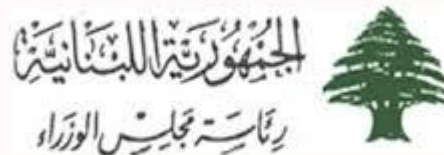 الجُمْهُورِيَّة اللبْنَانِيَّة
رِئَاسَة مَجْلِسْ الوُزَرَاء